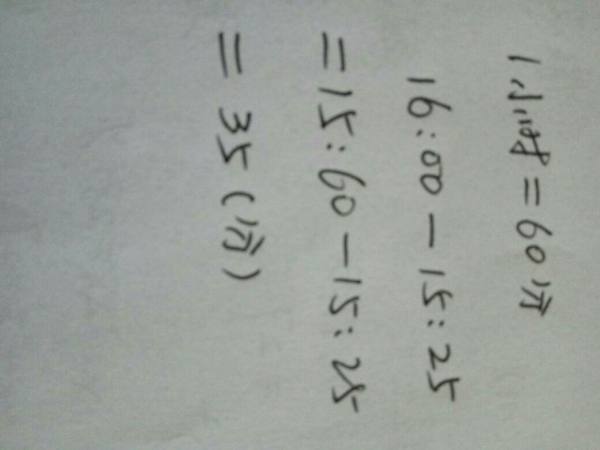 1小时=60分
16:00-15:25
=15:60-15:25
=35(分)